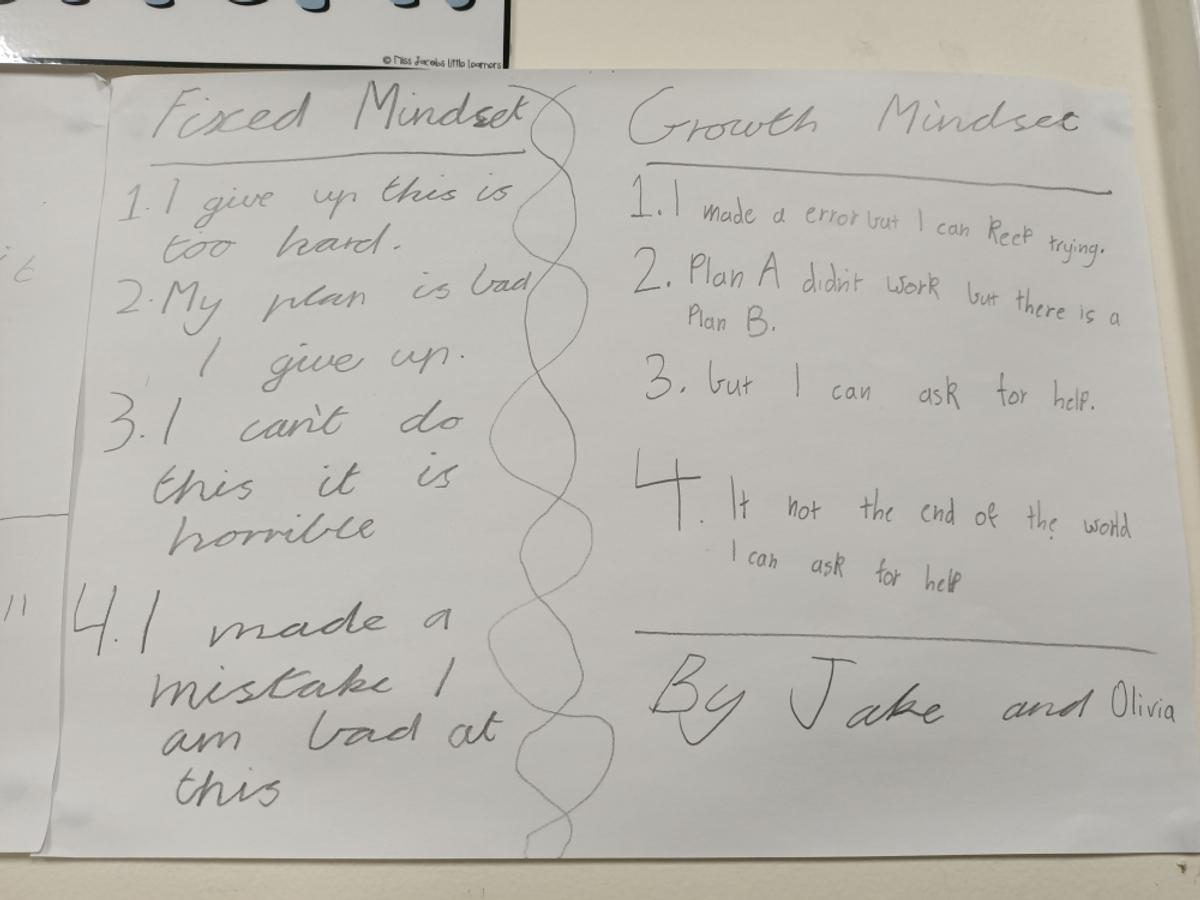 © Miss Jacobs little learners
Fixed Mindset
1. I give up this is
too hard.
2. My plan is bad
I give up.
3. I can't do
this it is
horrible
4. I made a
mistake I
am bad at
this
Growth Mindset
1. I made a error but I can keep trying.
2. Plan A didn't work but there is a
Plan B.
3. but I can ask for help.
4. It not the end of the world
I can ask for help
By Jake and Olivia